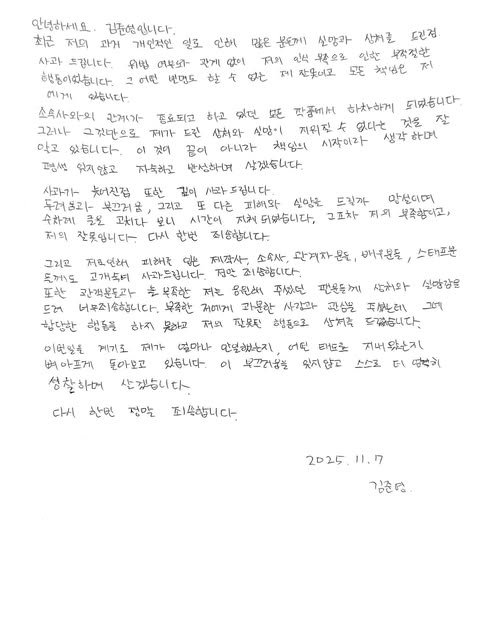 안녕하세요. 김준영입니다.
최근 저의 과거 개인적인 일로 인해 많은 분들께 실망과 상처를 드린점
사과 드립니다. 위법 여부와 관계 없이 저의 인식 부족으로 인한 부적절한
행동이었습니다. 그 어떤 변명도 할 수 없는 제 잘못이고 모든 책임은 저
에게 있습니다.
소속사와의 관계가 종료되고 하고 있던 모든 작품에서 하차하게 되었습니다.
그러나 그것만으로 제가 드린 상처와 실망이 지워질 수 없다는 것을 잘
알고 있습니다. 이 것이 끝이 아니라 책임의 시작이라 생각하며
평생 잊지않고 자숙하고 반성하며 살겠습니다.
사과가 늦어진점 또한 깊이 사과드립니다.
두려움과 부끄러움, 그리고 또 다른 피해와 실망을 드릴까 망설이며
수차례 글을 고치다 보니 시간이 지체되었습니다. 그조차 저의 부족함이고,
저의 잘못입니다. 다시 한번 죄송합니다.
그리고 저로인해 피해를 입은 제작사, 소속사, 관계자분들, 배우분들, 스태프분
들께도 고개숙여 사과드립니다. 정말 죄송합니다.
또한 관객분들과 부족한 저를 응원해 주셨던 팬분들께 상처와 실망감을
드려 너무죄송합니다. 부족한 저에게 과분한 사랑과 관심을 주셨는데 그에
합당한 행동을 하지 못하고 저의 잘못된 행동으로 상처를 드렸습니다.
이번일을 계기로 제가 얼마나 안일했는지, 어떤 태도로 지내왔는지
뼈아프게 돌아보고 있습니다. 이 부끄러움을 잊지않고 스스로 더 엄격히
성찰하며 살겠습니다.
다시 한번 정말 죄송합니다.
2025. 11. 7
김준영.